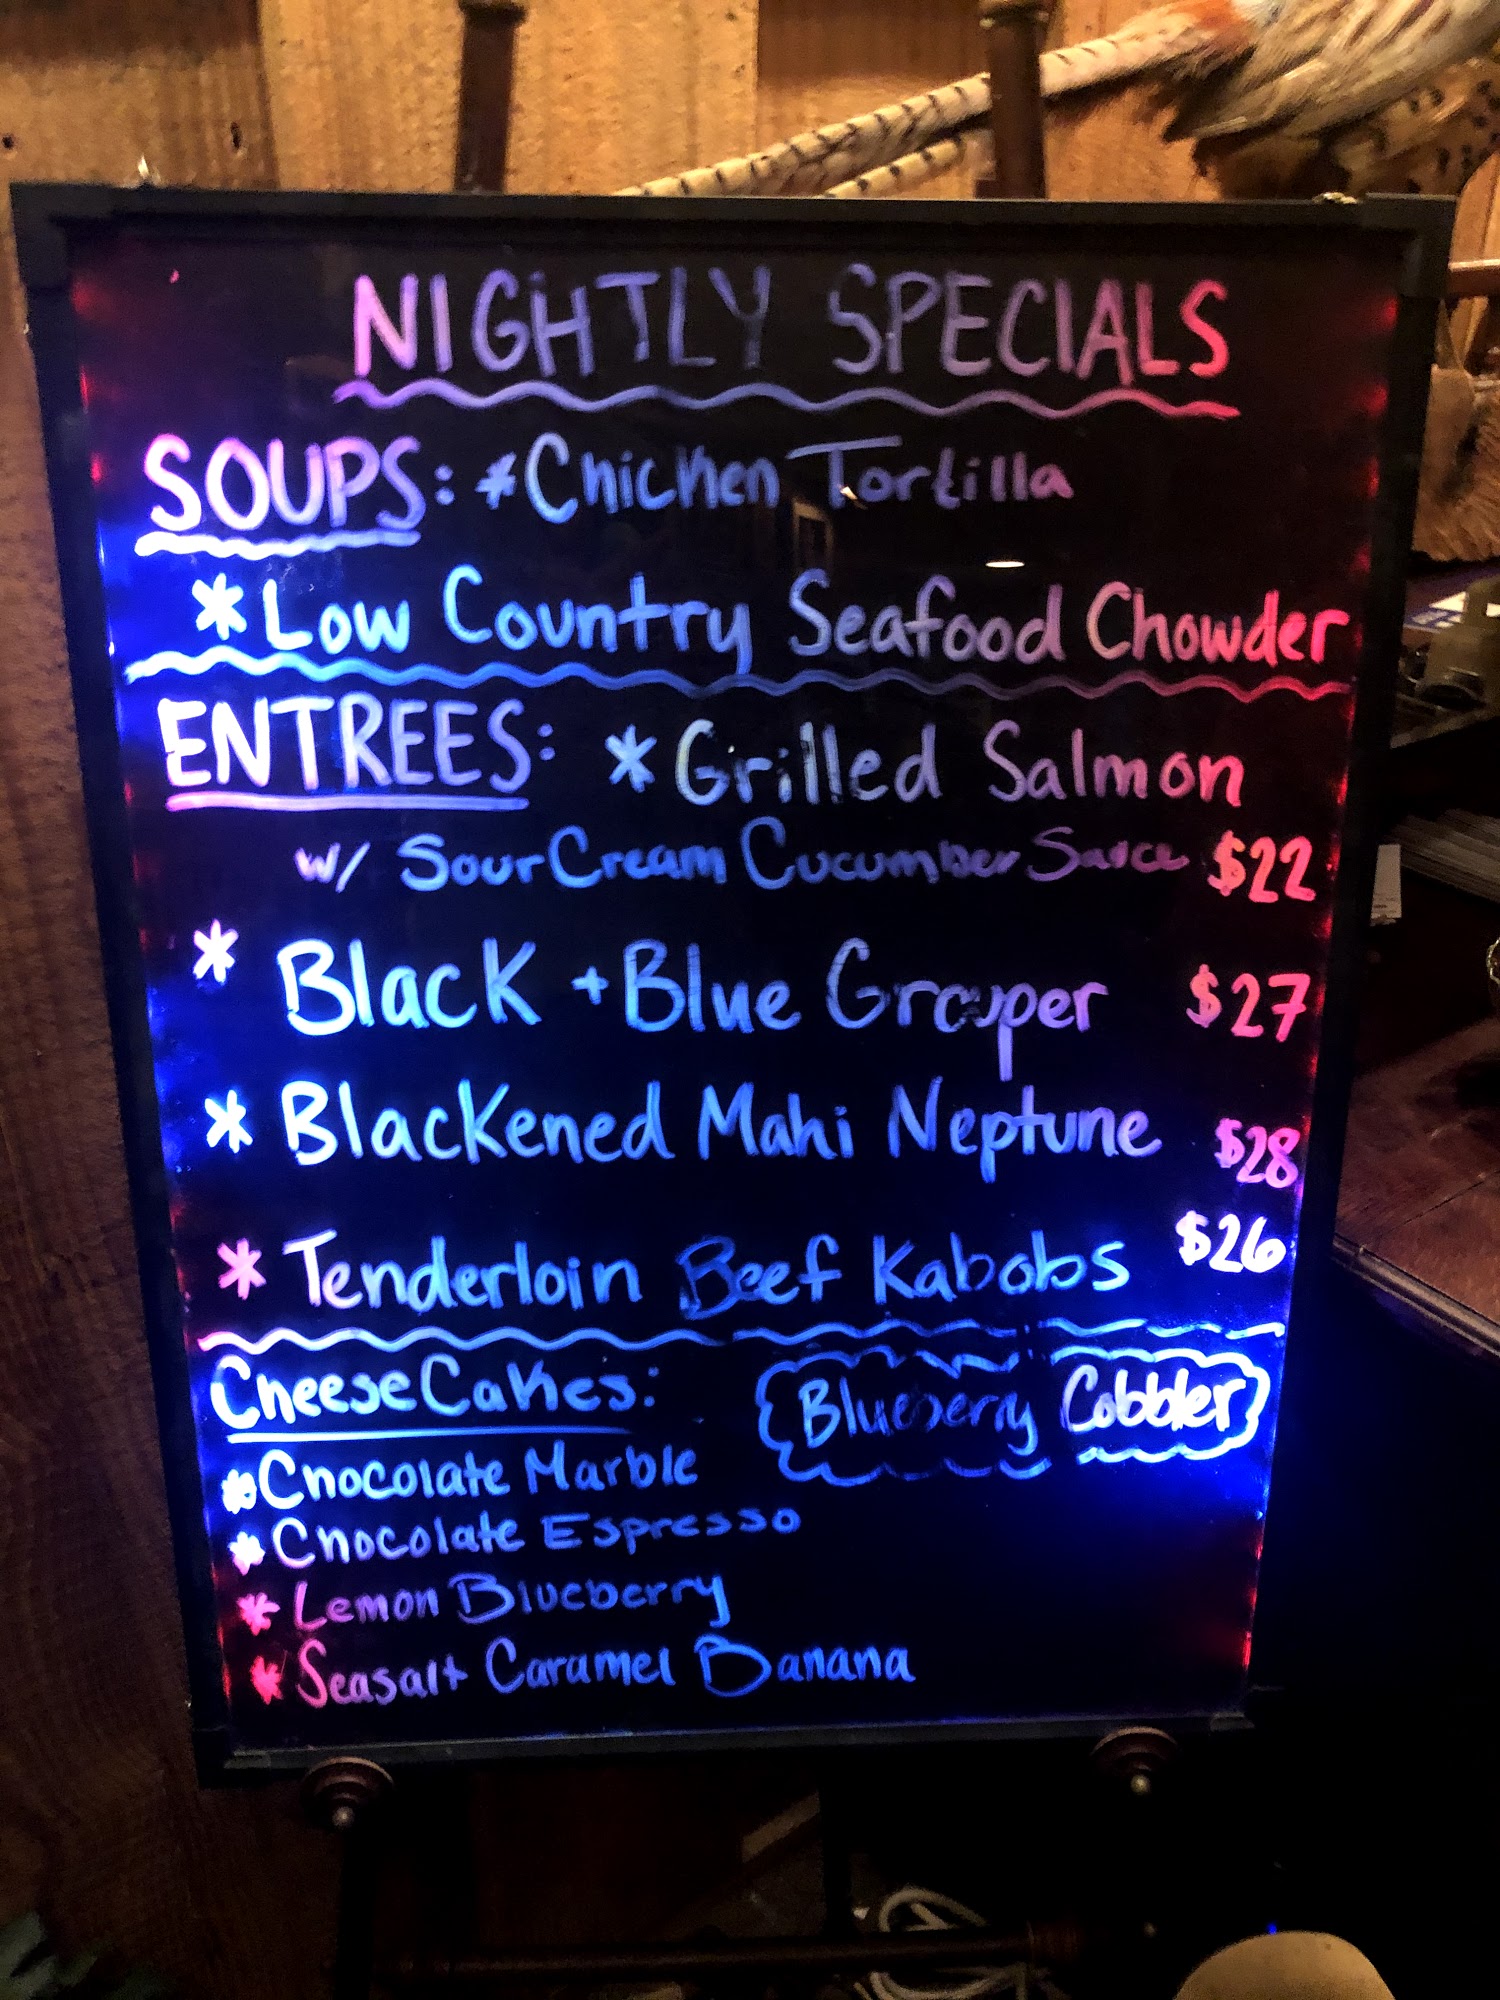 NIGHTLY SPECIALS
SOUPS: *Chicken Tortilla
*Low Country Seafood Chowder
ENTREES: *Grilled Salmon
w/ Sour Cream Cucumber Sauce $22
* Black + Blue Grouper $27
* Blackened Mahi Neptune $28
* Tenderloin Beef Kabobs $26
CheeseCakes: Blueberry Cobbler
*Chocolate Marble
*Chocolate Espresso
*Lemon Blueberry
*Seasalt Caramel Banana